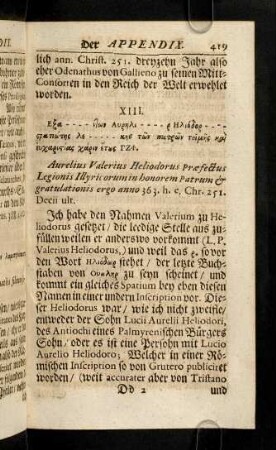 Der APPENDIX. 419
lich ann. Christ. 251. dreyzehn Jahr also
eher Odenathus von Gallieno zu seinen Mitt-
Consorten in den Reich der Welt erwehlet
worden.
XIII.
Aurelius Valerius Heliodorus Præfectus
Legionis Illyricorum in honorem Patrum &
gratulationis ergo anno 363. h. e, Chr. 251.
Decii ult.
Ich habe den Nahmen Valerium zu He-
liodorus gesetzt/ die leedige Stelle aus zu-
füllen weilen er anderswo vorkommt (L, P,
Valerius Heliodorus,) und weil das ρ. so vor
den Wort Ηλιόδωρ stehet / der letzte Buch-
staben von Ουαληρ zu seyn scheinet / und
kommt ein gleiches Spatium bey eben diesen
Namen in einer undern Inscription vor. Die-
ser Heliodorus war / wie ich nicht zweifle/
entweder der Sohn Lucii Aurelii Heliodori,
des Antiochi eines Palmyrenischen Bürgers
Sohn / oder es ist eine Persohn mit Lucio
Aurelio Heliodoro; Welcher in einer Rö-
mischen Inscription so von Grutero publiciret
worden/ (weit accurater aber von Tristano
Dd 2 und